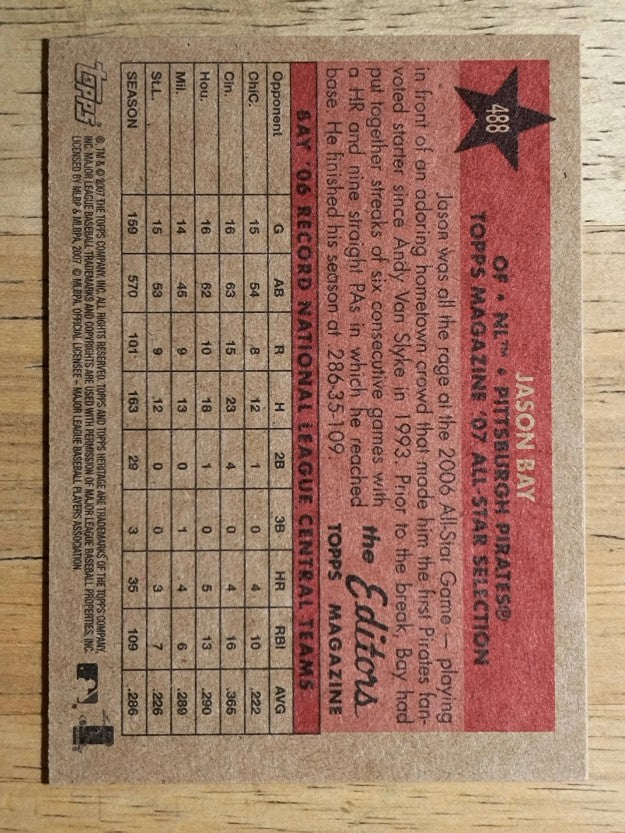 488
JASON BAY
OF • NL™ • PITTSBURGH PIRATES®
TOPPS MAGAZINE '07 ALL-STAR SELECTION
Jason was all the rage at the 2006 All-Star Game — playing
in front of an adoring hometown crowd that made him the first Pirates fan-
voted starter since Andy Van Slyke in 1993. Prior to the break, Bay had
put together streaks of six consecutive games with
a HR and nine straight PAs in which he reached
base. He finished his season at .286-35-109.
the Editors
TOPPS MAGAZINE
BAY '06 RECORD NATIONAL LEAGUE CENTRAL TEAMS
Opponent G AB R H 2B 3B HR RBI AVG
ChiC. 15 54 8 12 1 0 4 10 .222
Cin. 16 63 15 23 4 0 4 16 .365
Hou. 16 62 10 18 1 0 5 13 .290
Mil. 14 45 9 13 0 1 4 6 .289
St.L. 15 53 9 12 0 0 3 7 .226
SEASON 159 570 101 163 29 3 35 109 .286
topps
®, TM & © 2007 THE TOPPS COMPANY, INC. ALL RIGHTS RESERVED. TOPPS AND TOPPS HERITAGE ARE TRADEMARKS OF THE TOPPS COMPANY,
INC. MAJOR LEAGUE BASEBALL TRADEMARKS AND COPYRIGHTS ARE USED WITH PERMISSION OF MAJOR LEAGUE BASEBALL PROPERTIES, INC.
LICENSED BY MLBP & MLBPA, 2007 © MLBPA, OFFICIAL LICENSEE – MAJOR LEAGUE BASEBALL PLAYERS ASSOCIATION.